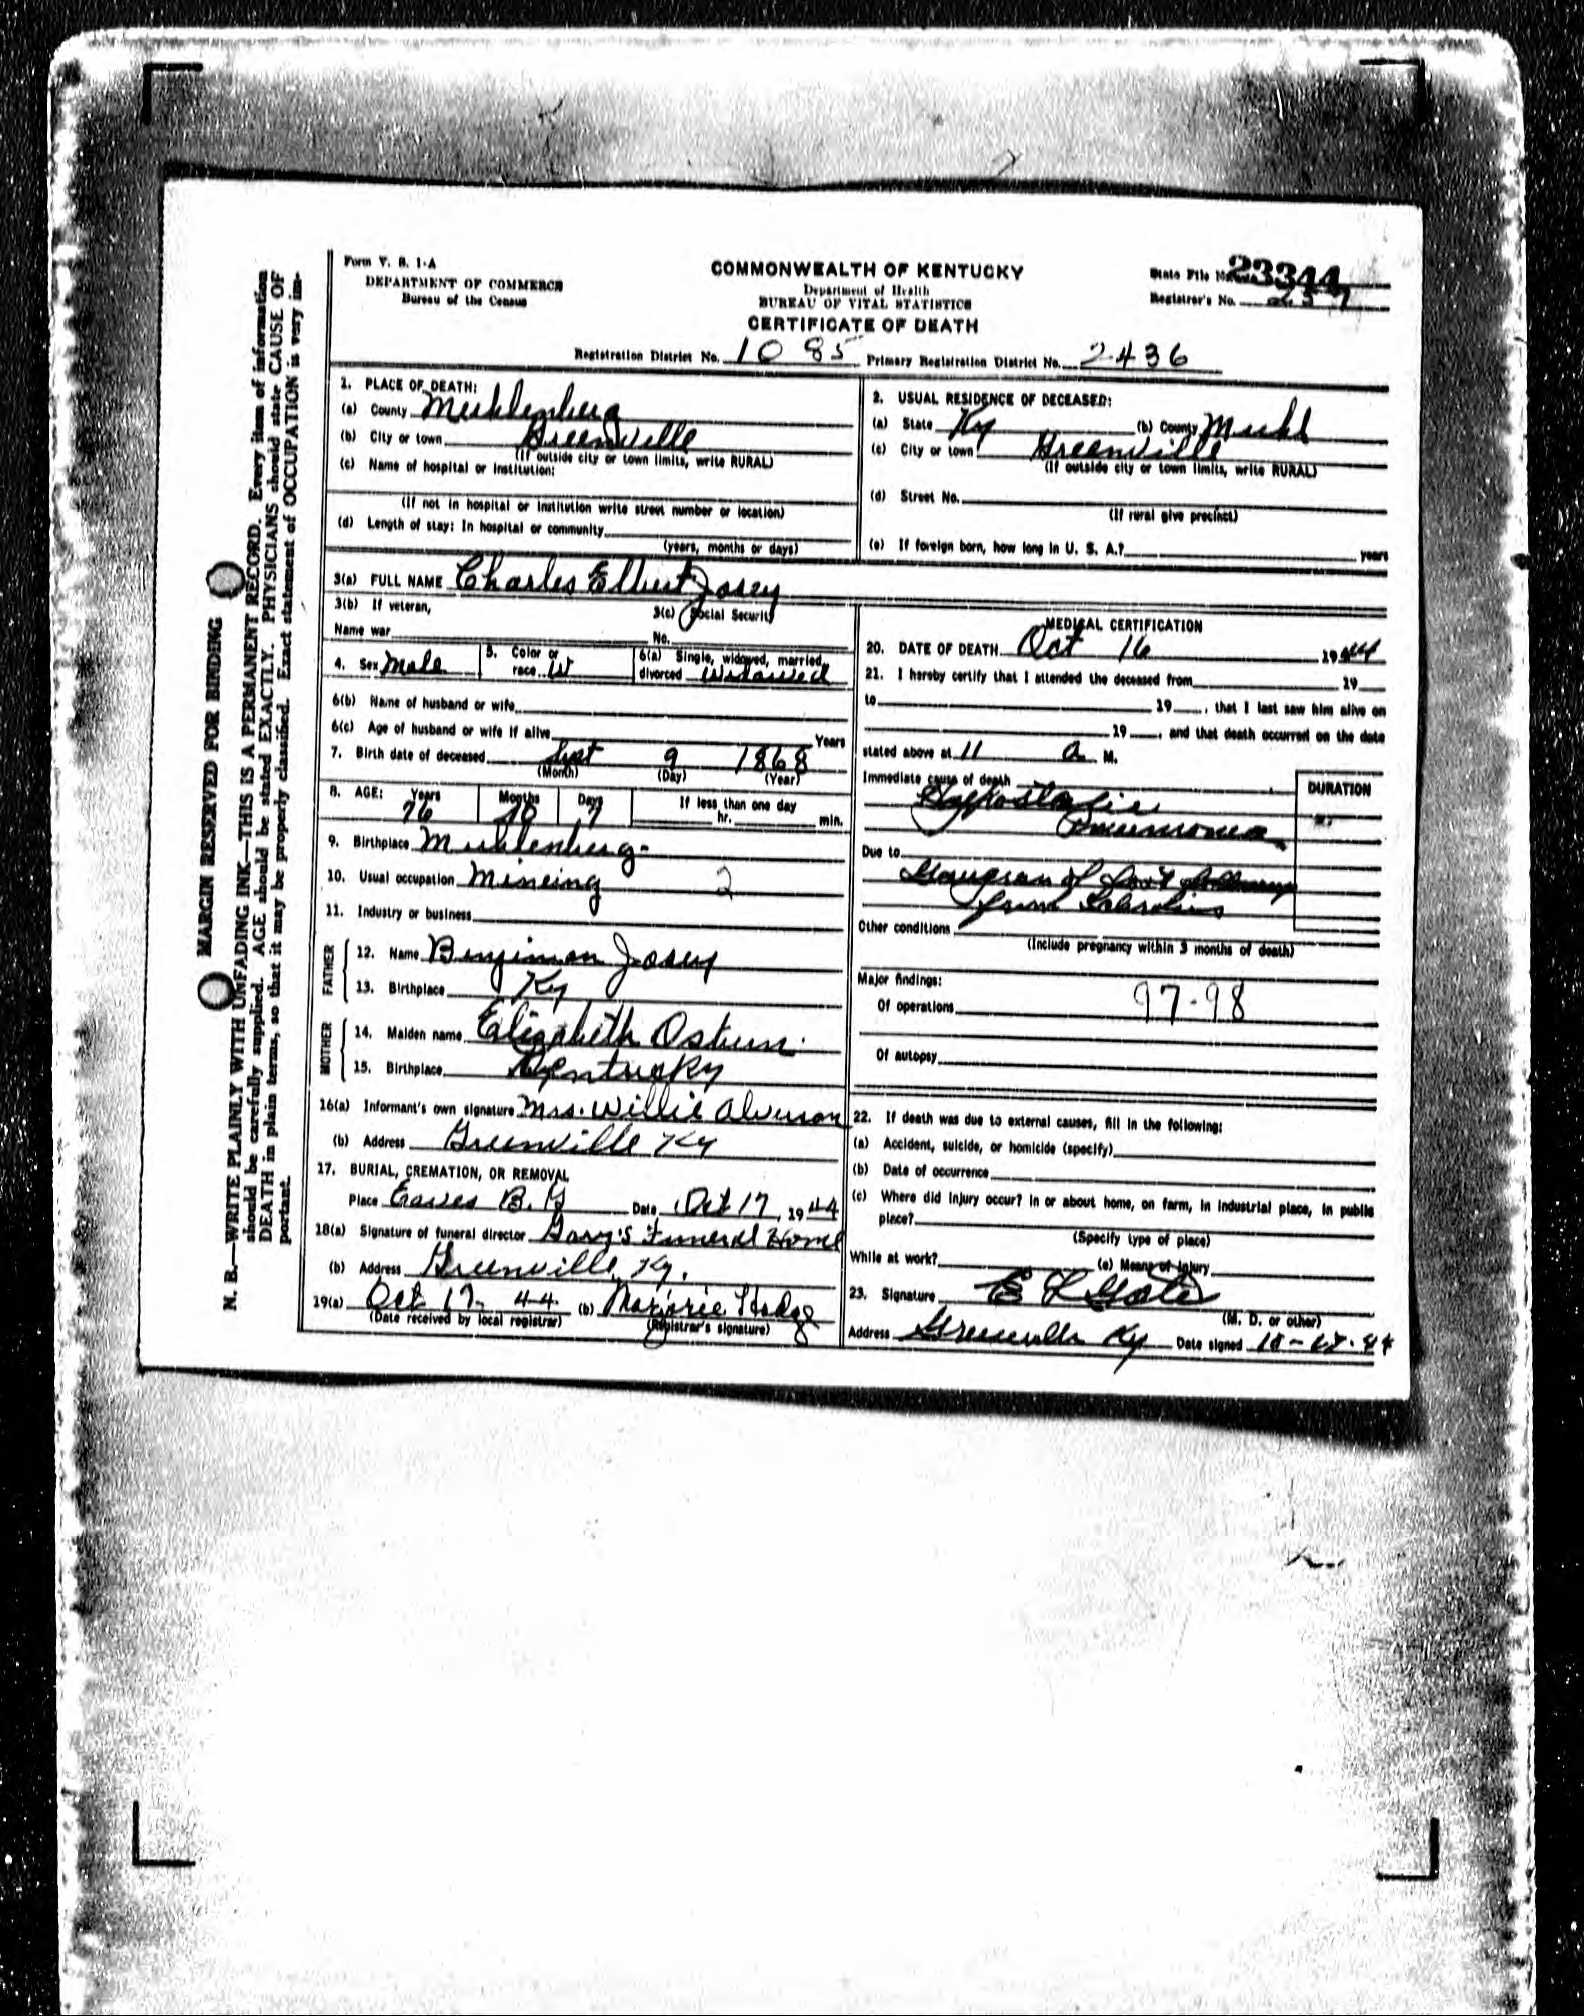 Form V. S. 1-A
DEPARTMENT OF COMMERCE
Bureau of the Census
COMMONWEALTH OF KENTUCKY
Department of Health
BUREAU OF VITAL STATISTICS
CERTIFICATE OF DEATH
State File No. 23344
Registrar's No. 237
Registration District No. 1085 Primary Registration District No. 2436
1. PLACE OF DEATH:
(a) County Muhlenberg
(b) City or town Greenville
(If outside city or town limits, write RURAL)
(c) Name of hospital or institution:
(If not in hospital or institution write street number or location)
(d) Length of stay: In hospital or community
(years, months or days)
2. USUAL RESIDENCE OF DECEASED:
(a) State Ky (b) County Muhl
(c) City or town Greenville
(If outside city or town limits, write RURAL)
(d) Street No.
(If rural give precinct)
(e) If foreign born, how long in U. S. A.? years
3(a) FULL NAME Charles Elbert Josey
3(b) If veteran,
Name war
3(c) Social Security
No.
4. Sex Male
5. Color or
race W
6(a) Single, widowed, married,
divorced Widowed
6(b) Name of husband or wife
6(c) Age of husband or wife if alive Years
7. Birth date of deceased Sept 9 1868
(Month) (Day) (Year)
8. AGE: Years Months Days If less than one day
76 10 7 hr. min.
9. Birthplace Muhlenberg
10. Usual occupation Mineing 2
11. Industry or business
FATHER
12. Name Benjiman Josey
13. Birthplace Ky
MOTHER
14. Maiden name Elizabeth Osburn
15. Birthplace Kentucky
16(a) Informant's own signature Mrs. Willie Alverson
(b) Address Greenville Ky
17. BURIAL, CREMATION, OR REMOVAL
Place Eaves B. G Date Oct 17, 1944
18(a) Signature of funeral director Gary's Funeral Home
(b) Address Greenville, Ky.
19(a) Oct 17- 44 (b) Marjorie Hodge
(Date received by local registrar) (Registrar's signature)
MEDICAL CERTIFICATION
20. DATE OF DEATH Oct 16 1944
21. I hereby certify that I attended the deceased from 19
to 19 , that I last saw him alive on
19 , and that death occurred on the date
stated above at 11 a M.
Immediate cause of death
DURATION
Hypostatic
Pneumonia
Due to
of foot
from
Other conditions
(Include pregnancy within 3 months of death)
Major findings:
Of operations 97-98
Of autopsy
22. If death was due to external causes, fill in the following:
(a) Accident, suicide, or homicide (specify)
(b) Date of occurrence
(c) Where did injury occur? In or about home, on farm, in industrial place, in public
place?
(Specify type of place)
While at work? (e) Means of injury
23. Signature E L Gates
(M. D. or other)
Address Greenville Ky Date signed
MARGIN RESERVED FOR BINDING
N. B.—WRITE PLAINLY WITH UNFADING INK—THIS IS A PERMANENT RECORD. Every item of information
should be carefully supplied. AGE should be stated EXACTLY. PHYSICIANS should state CAUSE OF
DEATH in plain terms, so that it may be properly classified. Exact statement of OCCUPATION is very im-
portant.